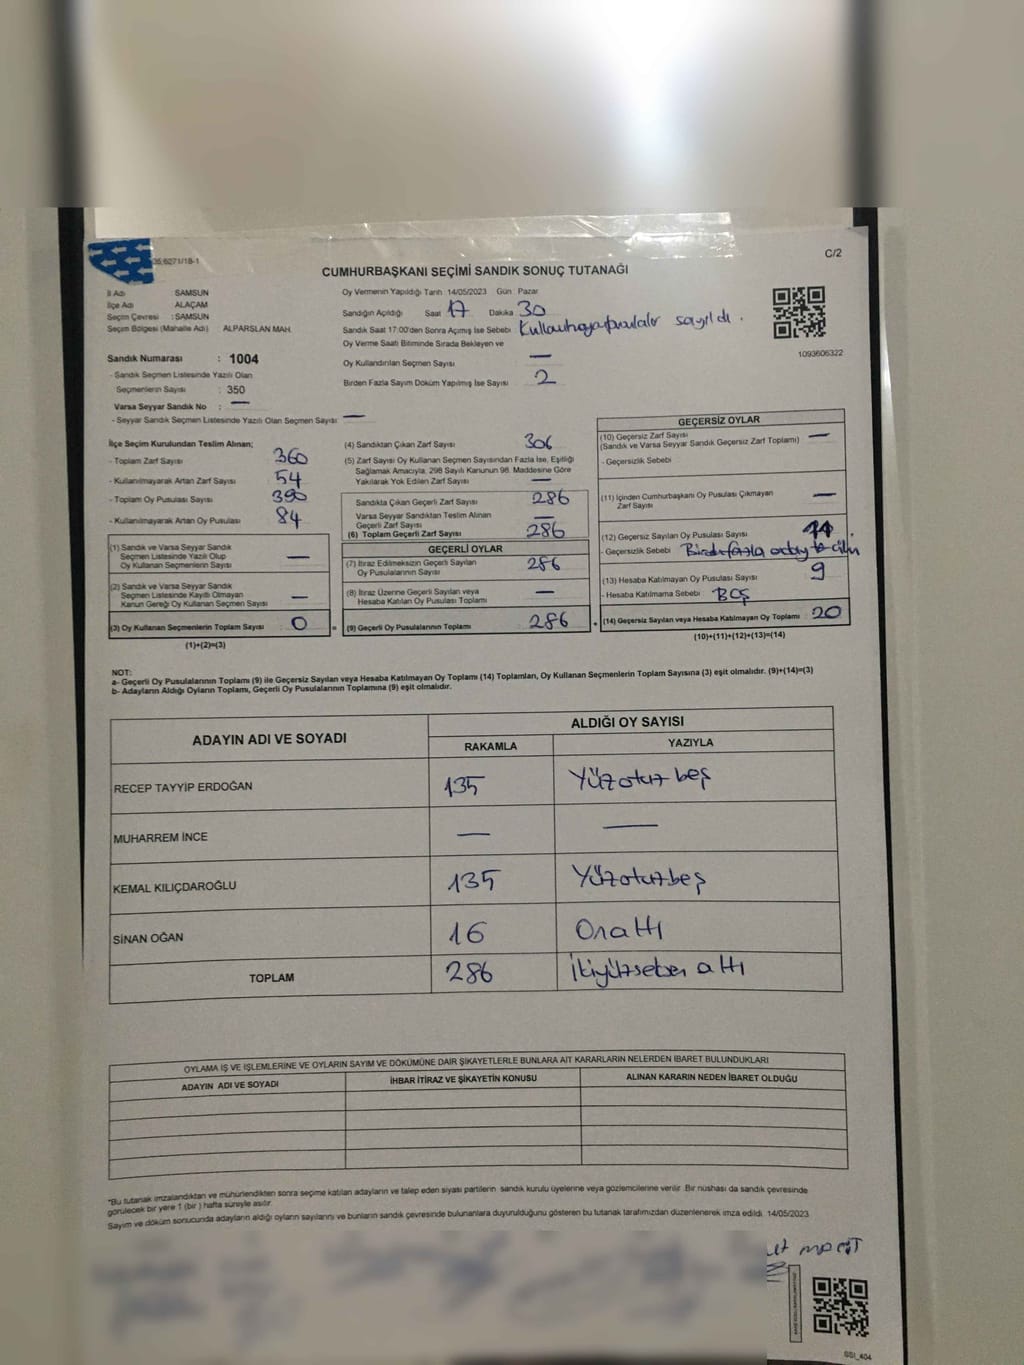 C/2
CUMHURBAŞKANI SEÇİMİ SANDIK SONUÇ TUTANAĞI
İl Adı SAMSUN
İlçe Adı ALAÇAM
Seçim Çevresi : SAMSUN
Seçim Bölgesi (Mahalle Adı) : ALPARSLAN MAH.
Sandık Numarası : 1004
- Sandık Seçmen Listesinde Yazılı Olan
Seçmenlerin Sayısı : 350
Varsa Seyyar Sandık No : —
- Seyyar Sandık Seçmen Listesinde Yazılı Olan Seçmen Sayısı —
Oy Vermenin Yapıldığı Tarih 14/05/2023 Gün : Pazar
Sandığın Açıldığı Saat 17 Dakika 30
Sandık Saat 17:00'den Sonra Açımış İse Sebebi sayıldı.
Oy Verme Saati Bitiminde Sırada Bekleyen ve
Oy Kullandırılan Seçmen Sayısı —
Birden Fazla Sayım Döküm Yapılmış İse Sayısı 2
1093606322
İlçe Seçim Kurulundan Teslim Alınan;
- Toplam Zarf Sayısı 360
- Kullanılmayarak Artan Zarf Sayısı 54
- Toplam Oy Pusulası Sayısı 390
- Kullanılmayarak Artan Oy Pusulası 84
(1) Sandık ve Varsa Seyyar Sandık
Seçmen Listesinde Yazılı Olup
Oy Kullanan Seçmenlerin Sayısı —
(2) Sandık ve Varsa Seyyar Sandık
Seçmen Listesinde Kayıtlı Olmayan
Kanun Gereği Oy Kullanan Seçmen Sayısı —
(3) Oy Kullanan Seçmenlerin Toplam Sayısı 0
(1)+(2)=(3)
(4) Sandıktan Çıkan Zarf Sayısı 306
(5) Zarf Sayısı Oy Kullanan Seçmen Sayısından Fazla İse, Eşitliği
Sağlamak Amacıyla, 298 Sayılı Kanunun 98. Maddesine Göre
Yakılarak Yok Edilen Zarf Sayısı —
Sandıkta Çıkan Geçerli Zarf Sayısı 286
Varsa Seyyar Sandıktan Teslim Alınan
Geçerli Zarf Sayısı —
(6) Toplam Geçerli Zarf Sayısı 286
GEÇERLİ OYLAR
(7) İtiraz Edilmeksizin Geçerli Sayılan
Oy Pusulalarının Sayısı 286
(8) İtiraz Üzerine Geçerli Sayılan veya
Hesaba Katılan Oy Pusulası Toplamı —
(9) Geçerli Oy Pusulalarının Toplamı 286
GEÇERSİZ OYLAR
(10) Geçersiz Zarf Sayısı
(Sandık ve Varsa Seyyar Sandık Geçersiz Zarf Toplamı) —
- Geçersizlik Sebebi
(11) İçinden Cumhurbaşkanı Oy Pusulası Çıkmayan
Zarf Sayısı —
(12) Geçersiz Sayılan Oy Pusulası Sayısı 11
- Geçersizlik Sebebi
(13) Hesaba Katılmayan Oy Pusulası Sayısı 9
- Hesaba Katılmama Sebebi BOŞ
(14) Geçersiz Sayılan veya Hesaba Katılmayan Oy Toplamı 20
(10)+(11)+(12)+(13)=(14)
NOT:
a- Geçerli Oy Pusulalarının Toplamı (9) ile Geçersiz Sayılan veya Hesaba Katılmayan Oy Toplamı (14) Toplamları, Oy Kullanan Seçmenlerin Toplam Sayısına (3) eşit olmalıdır. (9)+(14)=(3)
b- Adayların Aldığı Oyların Toplamı, Geçerli Oy Pusulalarının Toplamına (9) eşit olmalıdır.
ADAYIN ADI VE SOYADI
ALDIĞI OY SAYISI
RAKAMLA YAZIYLA
RECEP TAYYİP ERDOĞAN 135 Yüzotuz beş
MUHARREM İNCE — —
KEMAL KILIÇDAROĞLU 135 Yüzotuzbeş
SİNAN OĞAN 16 Onaltı
TOPLAM 286 İkiyüzseksen altı
OYLAMA İŞ VE İŞLEMLERİNE VE OYLARIN SAYIM VE DÖKÜMÜNE DAİR ŞİKAYETLERLE BUNLARA AİT KARARLARIN NELERDEN İBARET BULUNDUKLARI
ADAYIN ADI VE SOYADI İHBAR İTİRAZ VE ŞİKAYETİN KONUSU ALINAN KARARIN NEDEN İBARET OLDUĞU
*Bu tutanak imzalandıktan ve mühürlendikten sonra seçime katılan adayların ve talep eden siyasi partilerin sandık kurulu üyelerine veya gözlemcilerine verilir. Bir nüshası da sandık çevresinde
görülecek bir yere 1 (bir ) hafta süreyle asılır.
Sayım ve döküm sonucunda adayların aldığı oyların sayılarını ve bunların sandık çevresinde bulunanlara duyurulduğunu gösteren bu tutanak tarafımızdan düzenlenerek imza edildi. 14/05/2023
SSI_404